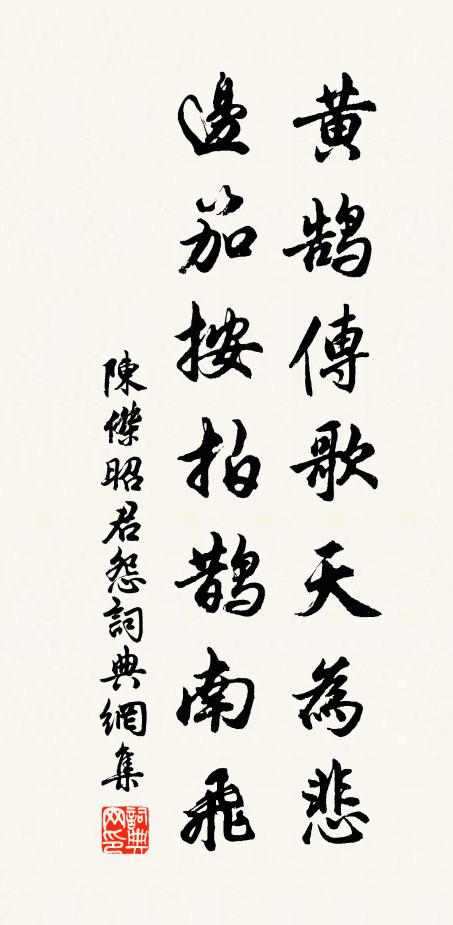 黃鵠傳歌天為悲
邊笳按拍鵲南飛
陳傑昭君怨詞典網集
詞典網印